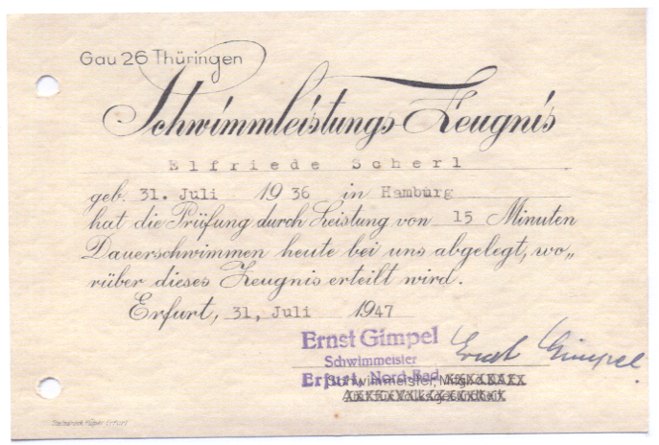 Gau 26 Thüringen
Schwimmleistungs-Zeugnis
Elfriede Scherl
geb. 31. Juli 1936 in Hamburg
hat die Prüfung durch Leistung von 15 Minuten
Dauerschwimmen heute bei uns abgelegt, wo„
rüber dieses Zeugnis erteilt wird.
Erfurt, 31, Juli 1947
Ernst Gimpel
Ernst Gimpel
Schwimmeister
Erfurt, Nord-Bad
Schwimmeister,